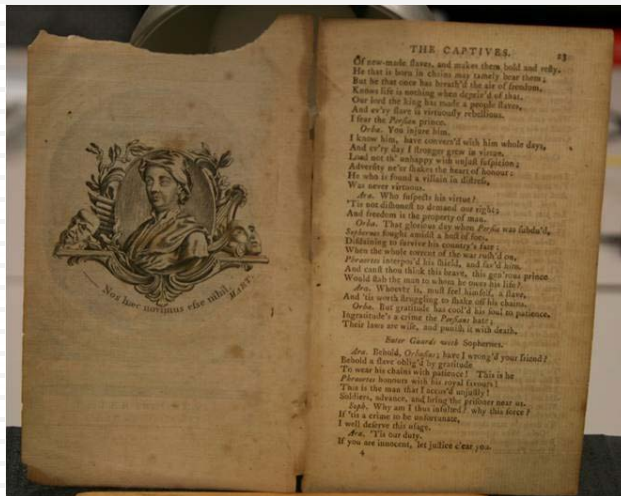 Nos hæc novimus esse nihil. MART.
THE CAPTIVES. 23
Of new-made ſlaves, and makes them bold and reſty.
He that is born in chains may tamely bear them;
But he that once has breath'd the air of freedom,
Knows life is nothing when depriv'd of that.
Our lord the king has made a people ſlaves,
And ev'ry ſlave is virtuouſly rebellious.
I fear the Perſian prince.
Orba. You injure him.
I know him, have convers'd with him whole days,
And ev'ry day I ſtronger grew in virtue.
Load not th' unhappy with unjuſt ſuſpicion;
Adverſity ne'er ſhakes the heart of honour:
He who is found a villain in diſtreſs,
Was never virtuous.
Ara. Who ſuſpects his virtue?
'Tis not diſhoneſt to demand our right;
And freedom is the property of man.
Orba. That glorious day when Perſia was ſubdu'd,
Sophernes fought amidſt a hoſt of foes,
Diſdaining to ſurvive his country's fate:
When the whole torrent of the war ruſh'd on,
Phraortes interpos'd his ſhield, and ſav'd him.
And canſt thou think this brave, this gen'rous prince
Would ſtab the man to whom he owes his life?
Ara. Whoever is, muſt feel himſelf, a ſlave,
And 'tis worth ſtruggling to ſhake off his chains.
Orba. But gratitude has cool'd his ſoul to patience.
Ingratitude's a crime the Perſians hate;
Their laws are wiſe, and puniſh it with death.
Enter Guards with Sophernes.
Ara. Behold, Orbaſius; have I wrong'd your friend?
Behold a ſlave oblig'd by gratitude
To wear his chains with patience! This is he
Phraortes honours with his royal favours!
This is the man that I accus'd unjuſtly!
Soldiers, advance, and bring the priſoner near us.
Soph. Why am I thus inſulted? why this force?
If 'tis a crime to be unfortunate,
I well deſerve this uſage.
Ara. 'Tis our duty.
If you are innocent, let juſtice clear you.
4